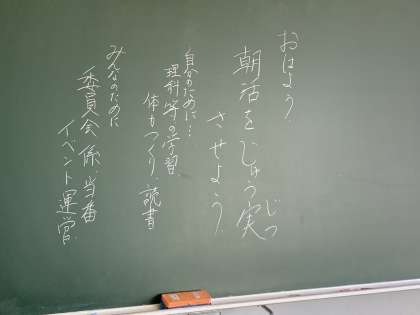 おはよう
朝活をじゅう実
じつ
させよう
自分のために…
理科等の学習
体力つくり、読書
みんなのために
委員会、係、当番
イベント運営